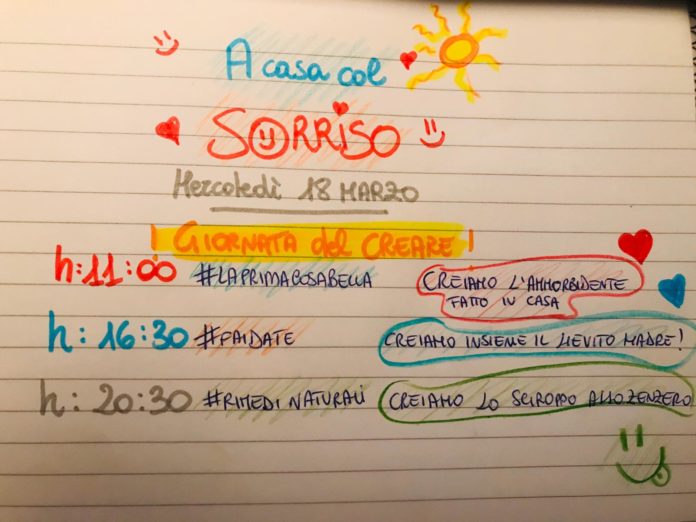 A casa col
SORRISO
Mercoledì 18 MARZO
! GIORNATA del CREARE !
h:11:00 #LAPRIMACOSABELLA CREIAMO L'AMMORBIDENTE
FATTO IN CASA
h: 16:30 #FAIDATE CREIAMO INSIEME IL LIEVITO MADRE!
h: 20:30 #RIMEDI NATURALI CREIAMO LO SCIROPPO ALLO ZENZERO